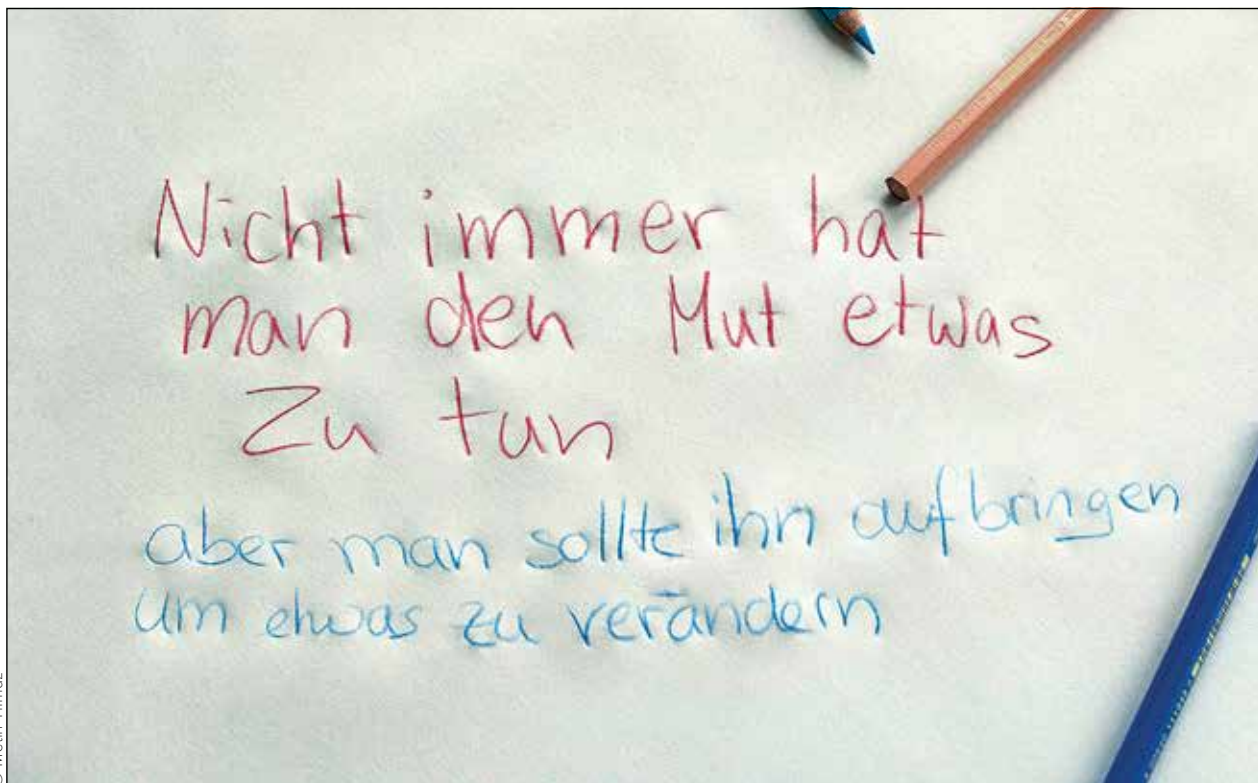 Nicht immer hat
man den Mut etwas
zu tun
aber man sollte ihn aufbringen
um etwas zu verändern